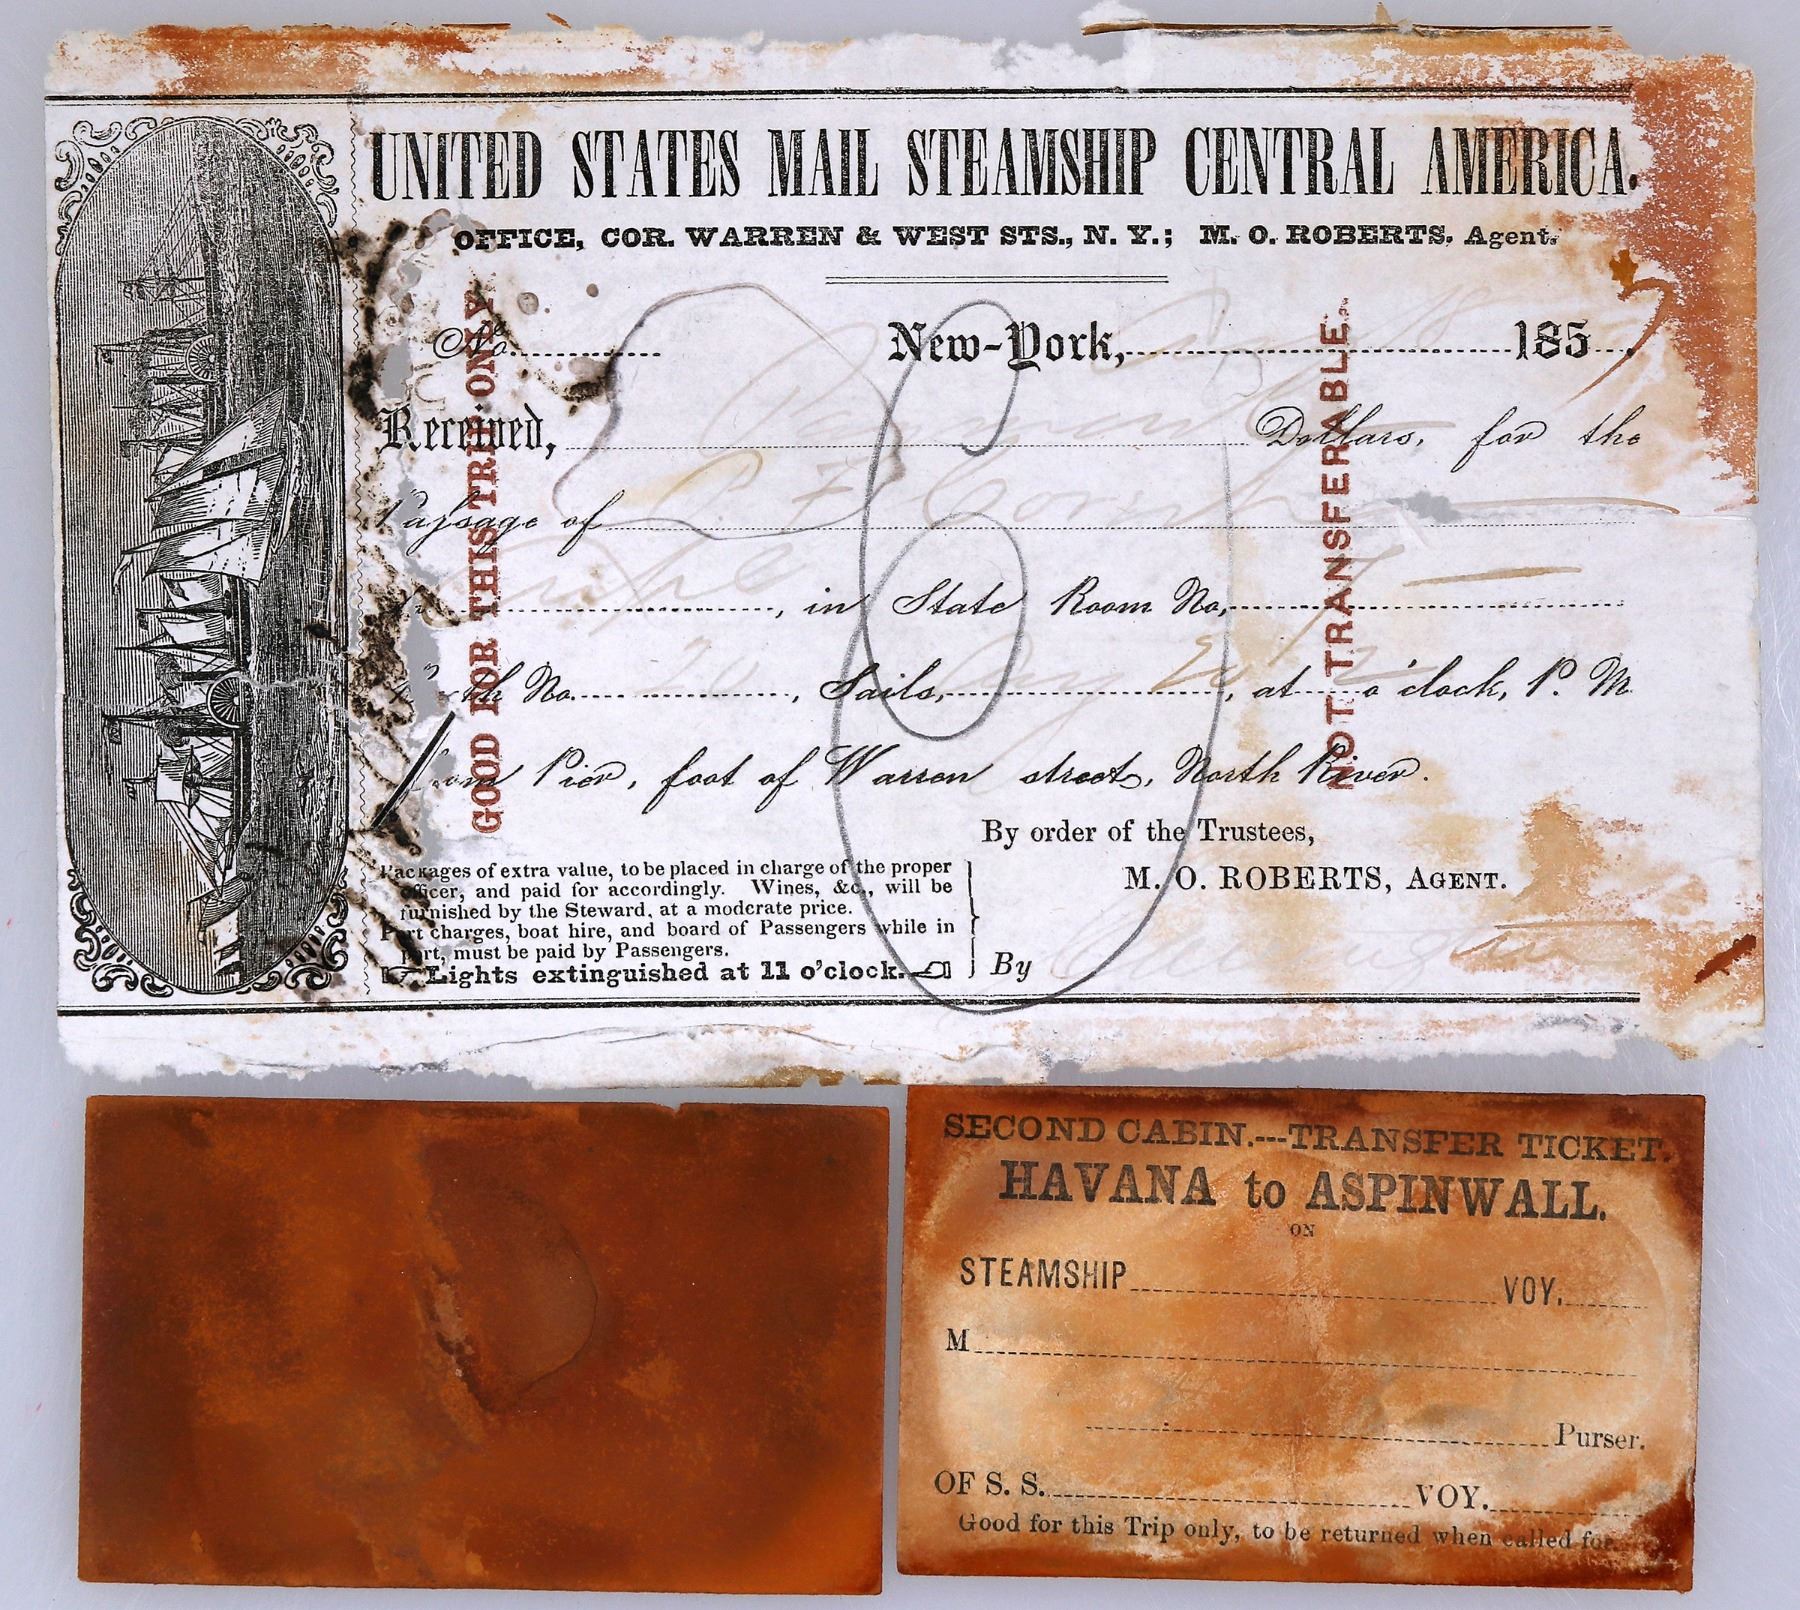 UNITED STATES MAIL STEAMSHIP CENTRAL AMERICA.
OFFICE, COR. WARREN & WEST STS., N. Y.; M. O. ROBERTS, Agent.
No. New-York, 18 1857
Received, Dollars, for the
Passage of
in State Room No.
Berth No. 20, Sails, 20, at 2 o'clock, P. M
from Pier, foot of Warren street, North River.
By order of the Trustees,
M. O. ROBERTS, AGENT.
By
Packages of extra value, to be placed in charge of the proper
officer, and paid for accordingly. Wines, &c., will be
furnished by the Steward, at a moderate price.
Port charges, boat hire, and board of Passengers while in
port, must be paid by Passengers.
Lights extinguished at 11 o'clock.
GOOD FOR THIS TRIP ONLY
NOT TRANSFERABLE.
SECOND CABIN.---TRANSFER TICKET.
HAVANA to ASPINWALL.
ON
STEAMSHIP VOY.
M
Purser.
OF S. S. VOY.
Good for this Trip only, to be returned when called for.